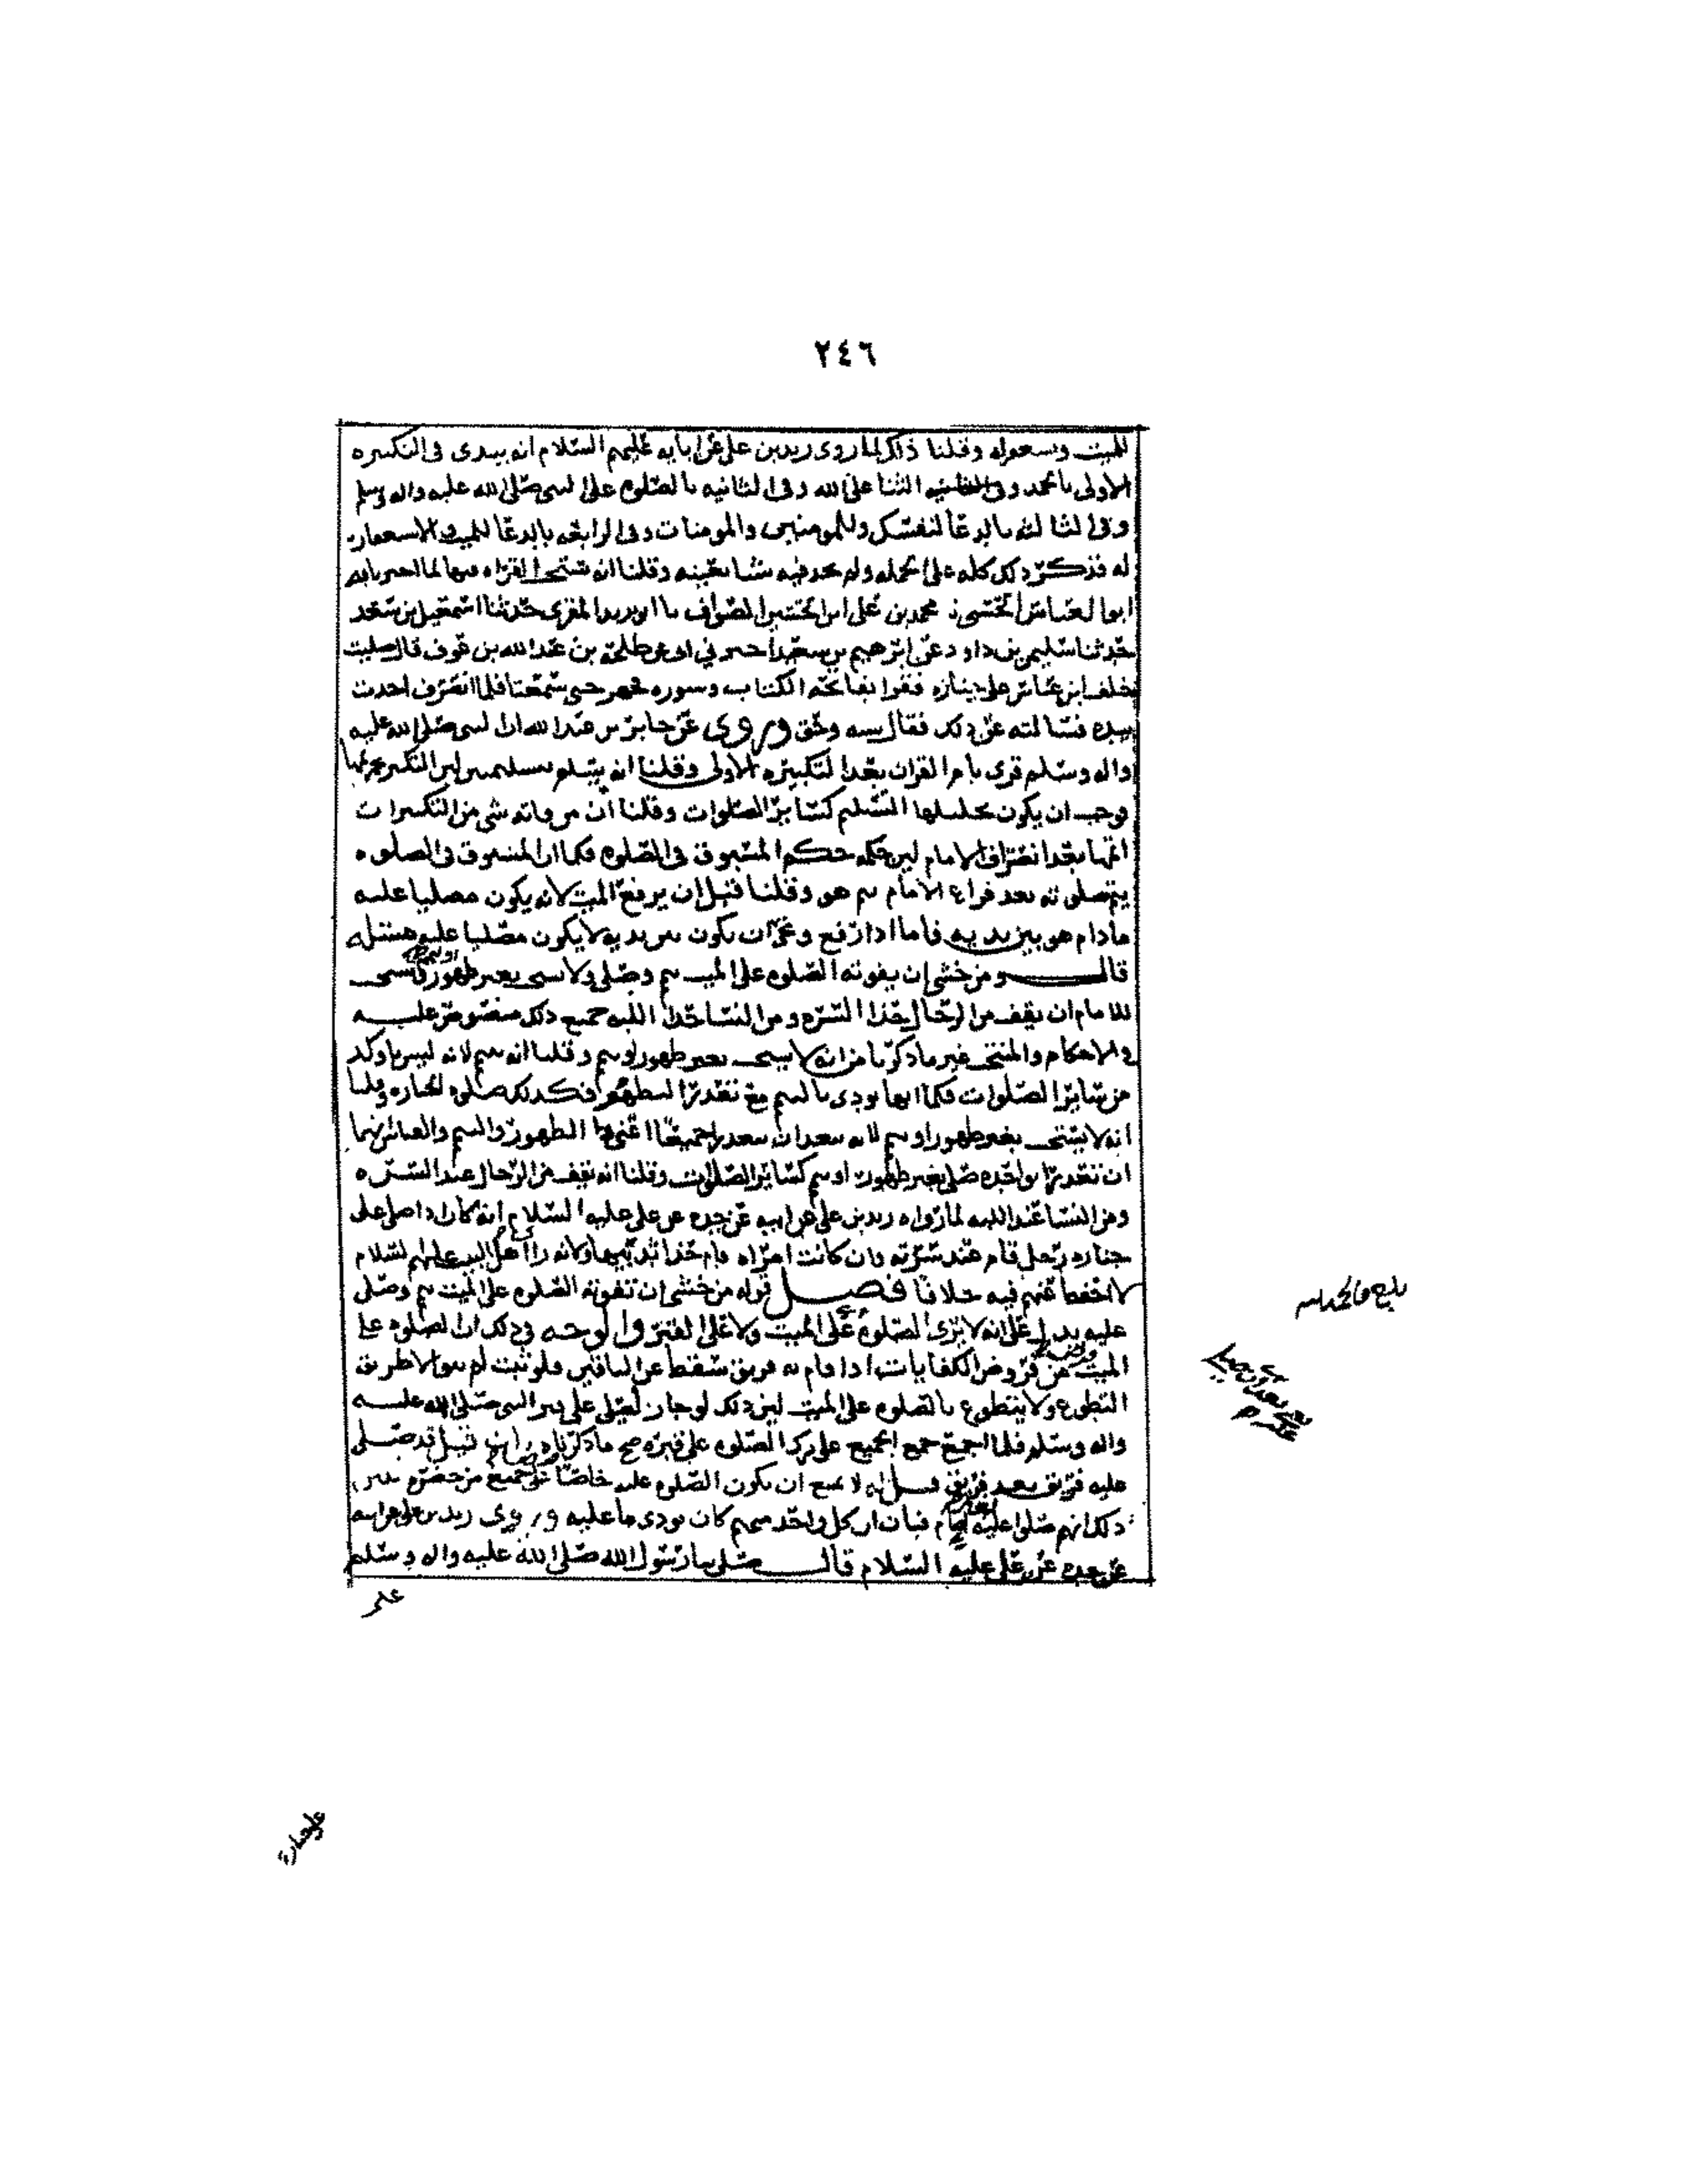 ٢٤٦
للميت ويستغفر له وقلنا ذلك لما روى زيد بن علي عن ابايه عليهم السلام انه يبدى في التكبيره
الاولى بالحمد والثنا على الله وفي الثانيه بالصلوه على النبى صلى الله عليه واله وسلم
وفي الثالثه بالدعا لنفسك وللمومنين والمومنات وفي الرابعه بالدعا للميت والاستغفار
له فذكر ذلك كله على الجمله ولم يحد فيه شيا بعينه وقلنا انه يستحب القراه فيها لما اخبرنا به
ابو العباس الحسنى محمد بن على بن الحسين الصواف ابو يزيد المقرى حدثنا اسمعيل بن سعيد
حدثنا سليمن بن داود عن ابرهيم بن سعد اخبرني ابى عن طلحه بن عبد الله بن عوف قال صليت
خلف ابن عباس على جنازه فقرا بفاتحه الكتاب وسوره فجهر حتى سمعنا فلما انصرف اخذت
بيده فسالته عن ذلك فقال سنه وحق وروى عن جابر بن عبد الله ان النبى صلى الله عليه
واله وسلم قرى بام القران بعد التكبيره الاولى وقلنا انه يسلم تسليمتين لان التكبير تحريمها
فوجب ان يكون تحليلها التسليم كسائر الصلوات وقلنا ان من فاته شي من التكبيرات
اتمها بعد انصراف الامام لان حكمه حكم المسبوق في الصلوه فكما ان المسبوق في الصلوه
يتم صلوته بعد فراغ الامام ثم هو وقلنا قبل ان يرفع الميت لانه يكون مصليا عليه
مادام هو بين يديه فاما اذا رفع وخرج ان يكون بين يديه لا يكون مصليا عليه مسئله
قال ومن خشى ان يفوته الصلوه على الميت تيمم وصلى ولا يستحب بغير طهور ويستحب
للامام ان يقف من الرجال حذا السره ومن النسا حذا اللبه جميع ذلك منصوص عليه
في الاحكام والمنتخب غير ما ذكرنا من انه لا يستحب بغير طهور او تيمم وقلنا انه تيمم لانه ليس باوكد
من سائر الصلوات فكما انها تودى بالتيمم مع تعذر التطهر فكذلك صلوه الجنازه وقلنا
انه لا يستحب بغير طهور او تيمم لانه يبعد ان يتعذرا جميعا اعنى الطهور والتيمم والقياس فيهما
ان تعذرا بواحده صلى بغير طهور او تيمم كسائر الصلوات وقلنا انه يقف من الرجال عند السره
ومن النسا عند اللبه لما رواه زيد بن على عن ابيه عن جده عن علي عليه السلام انه كان اذا صلى على
جنازه رجل قام عند سرته وان كانت امراه قام حذا ثدييها ولانه راى اهل البيت عليهم السلام
لا احفظ عنهم فيه خلافا فصل قوله من خشى ان تفوته الصلوه على الميت تيمم وصلى
عليه يدل على انه لا يرى الصلوه على الميت ولا على القبر والوجه في ذلك ان الصلوه على
الميت من فروض الكفايات اذا قام به فريق سقط عن الباقين فلو ثبت لم يبق الا طريق
التطوع ولا يتطوع بالصلوه على الميت لان ذلك لو جاز لصلى على قبر النبى صلى الله عليه
واله وسلم فلما اجمع الجميع على ترك الصلوه على قبره صح ما ذكرناه فان قيل قد صلى
عليه فريق بعد فريق قيل له لا يمنع ان تكون الصلوه عليه خاصا جميع من حضره يبين
ذلك انهم صلوا عليه فبان ان كل واحد منهم كان يودى ما عليه وروى زيد بن على عن ابيه
عن جده عن على عليه السلام قال صلى بنا رسول الله صلى الله عليه واله وسلم
على
بلغ